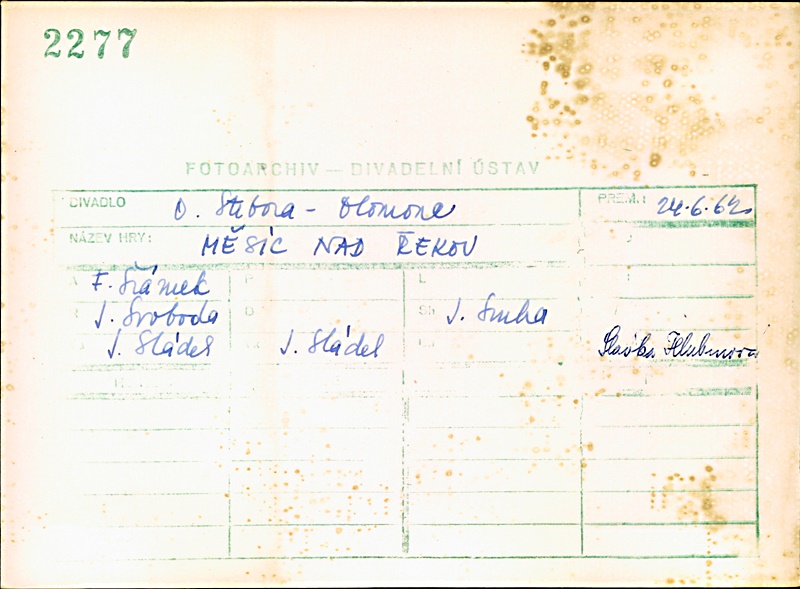 2277
FOTOARCHIV — DIVADELNÍ ÚSTAV
DIVADLO O. Stibora - Olomouc PREM.: 24.6.62
NÁZEV HRY: MĚSÍC NAD ŘEKOU
F. Šrámek
J. Svoboda J. Smha
J. Sládek J. Sládek Slávka Hlubinová